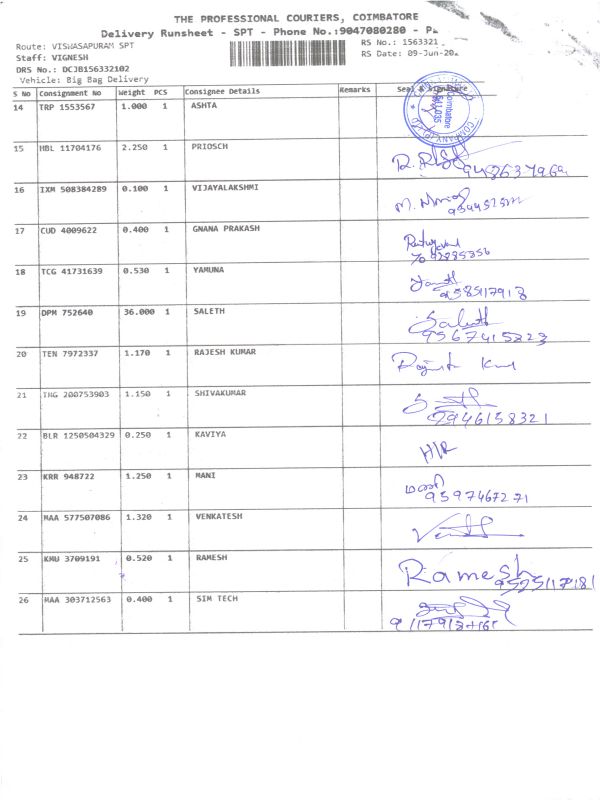 THE PROFESSIONAL COURIERS, COIMBATORE
Delivery Runsheet - SPT - Phone No.:9047080280 -
Route: VISWASAPURAM SPT RS No.: 1563321
Staff: VIGNESH RS Date: 09-Jun-20
DRS No.: DCJB156332102
Vehicle: Big Bag Delivery
S No Consignment No Weight PCS Consignee Details Remarks Seal & Signature
14 TRP 1553567 1.000 1 ASHTA
Coimbatore
641 035
15 HBL 11704176 2.250 1 PRIOSCH
16 IXM 508384289 0.100 1 VIJAYALAKSHMI
17 CUD 4009622 0.400 1 GNANA PRAKASH
18 TCG 41731639 0.530 1 YAMUNA
9585117918
19 DPM 752640 36.000 1 SALETH
Saleth
9567415823
20 TEN 7972337 1.170 1 RAJESH KUMAR
21 TNG 200753903 1.150 1 SHIVAKUMAR
9946158321
22 BLR 1250504329 0.250 1 KAVIYA
H/R
23 KRR 948722 1.250 1 MANI
மணி
9597467271
24 MAA 577507086 1.320 1 VENKATESH
25 KMU 3709191 0.520 1 RAMESH
Ramesh
26 MAA 303712563 0.400 1 SIM TECH